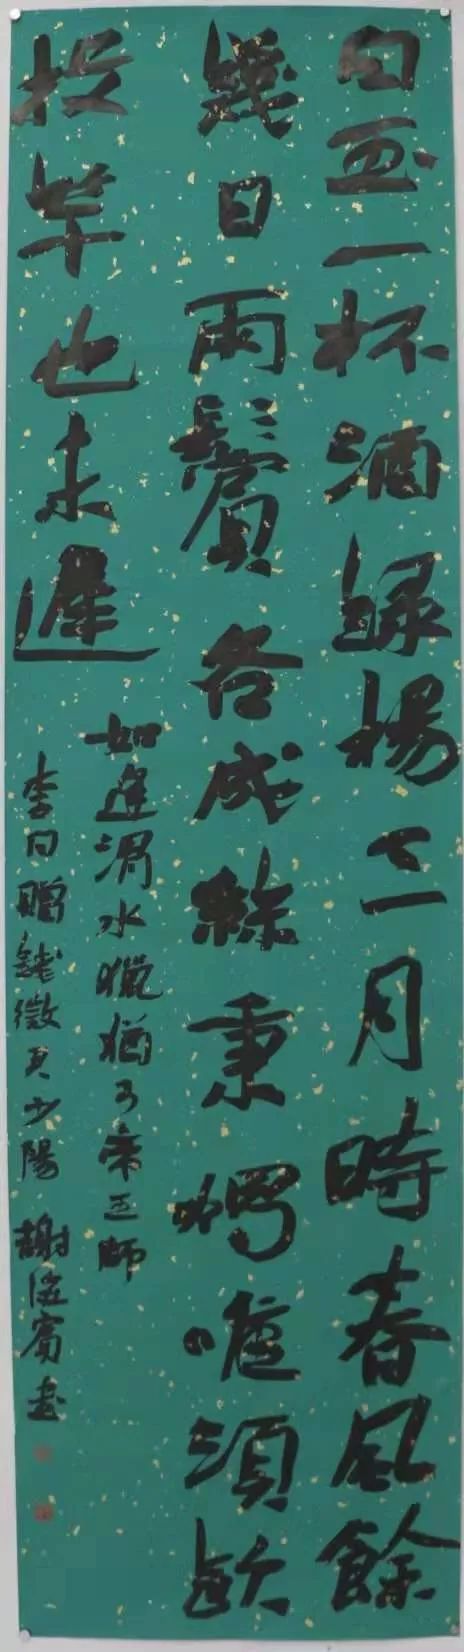 白玉一杯酒綠楊三月時春風餘
幾日兩鬢各成絲秉燭唯須飲
投竿也未遲
如逢渭水獵猶可帝王師
李白贈錢徵君少陽 謝